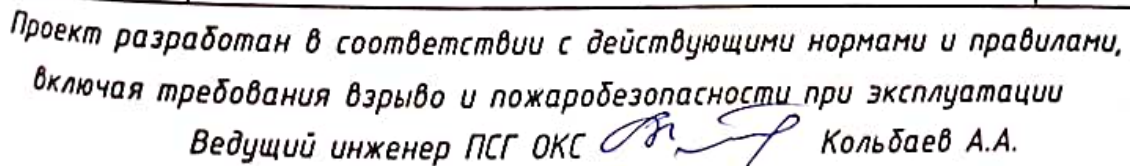 Проект разработан в соответствии с действующими нормами и правилами,
включая требования взрыво и пожаробезопасности при эксплуатации
Ведущий инженер ПСГ ОКС Кольбаев А.А.